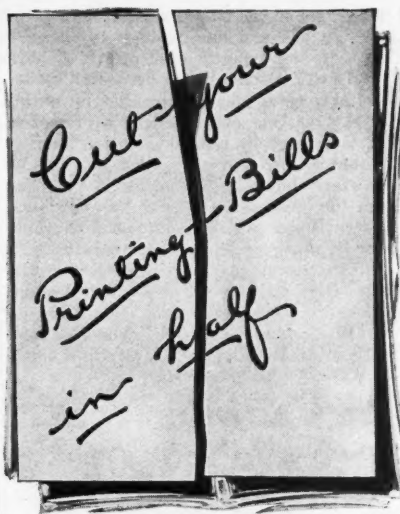 Cut your
Printing Bills
in half